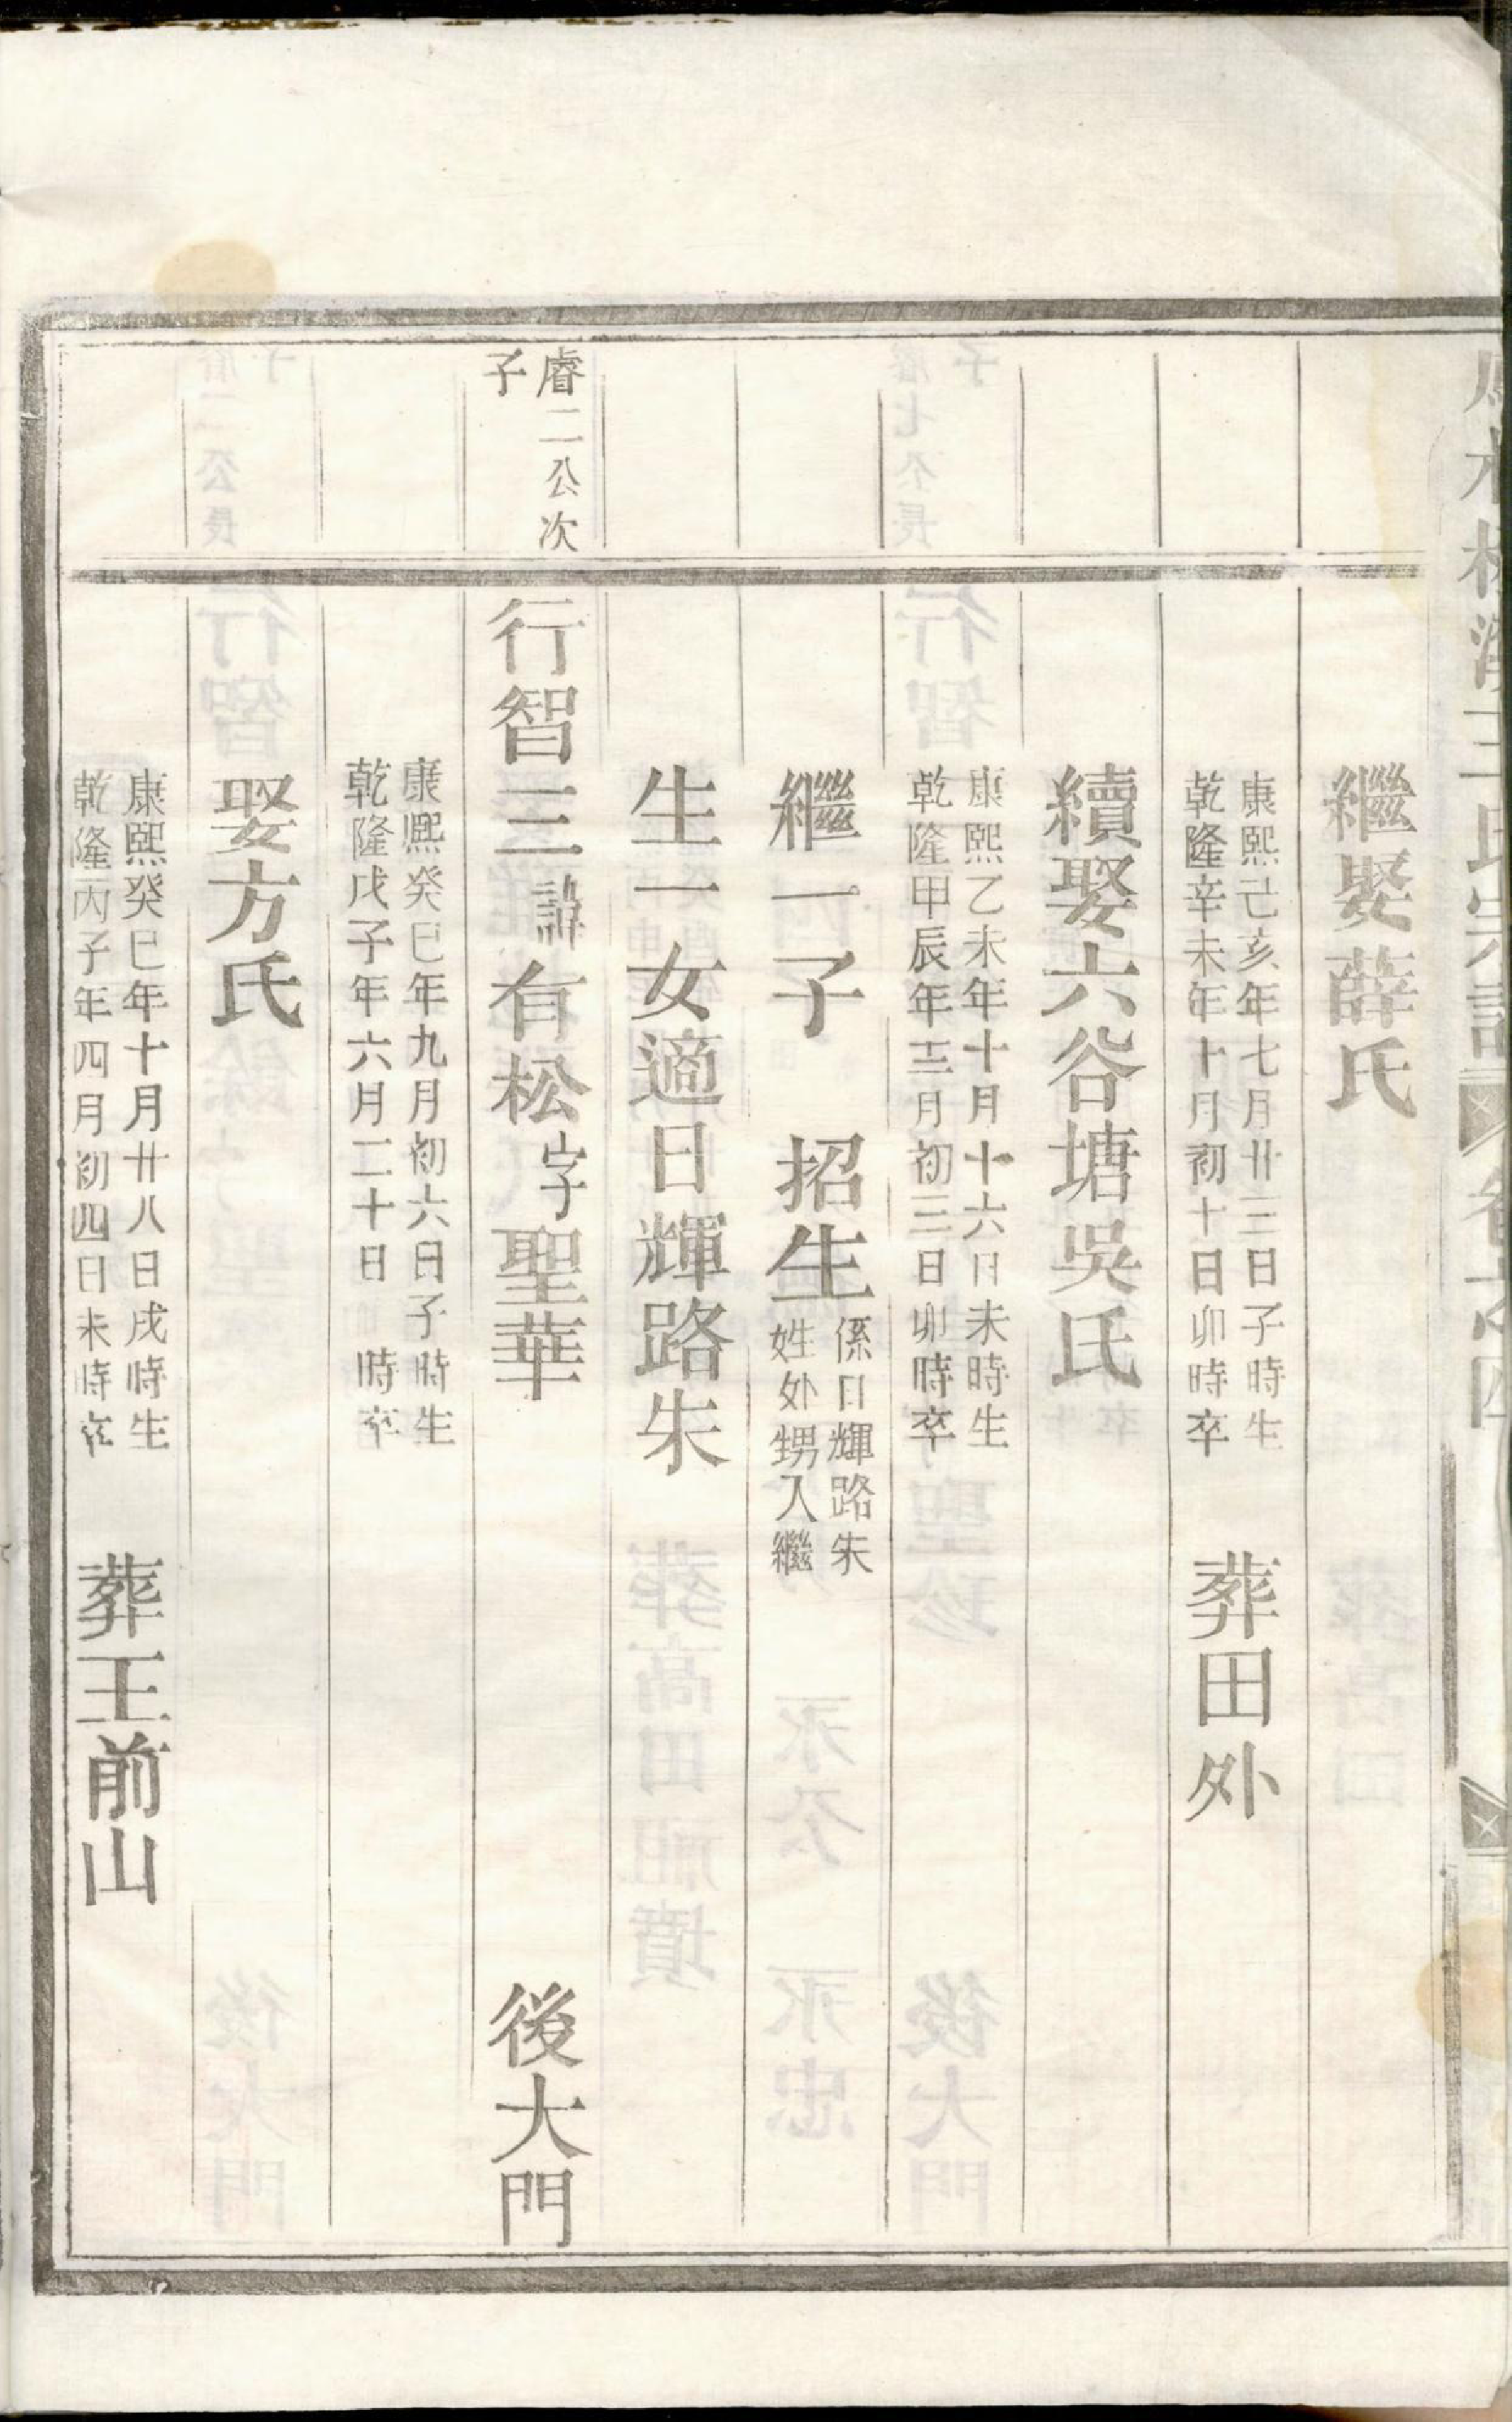 繼娶薛氏
康熙己亥年七月廿三日子時生
乾隆辛未年十月初十日卯時卒
葬田外
續娶六谷塘吳氏
康熙乙未年十月十六日未時生
乾隆甲辰年三月初三日卯時卒
繼一子 招生
係日輝路朱
姓外甥入繼
生一女適日輝路朱
睿二公次
子
行智三諱有松字聖華 後大門
康熙癸巳年九月初六日子時生
乾隆戊子年六月二十日 時卒
娶方氏
康熙癸巳年十月廿八日戌時生
乾隆丙子年四月初四日未時卒
葬王前山